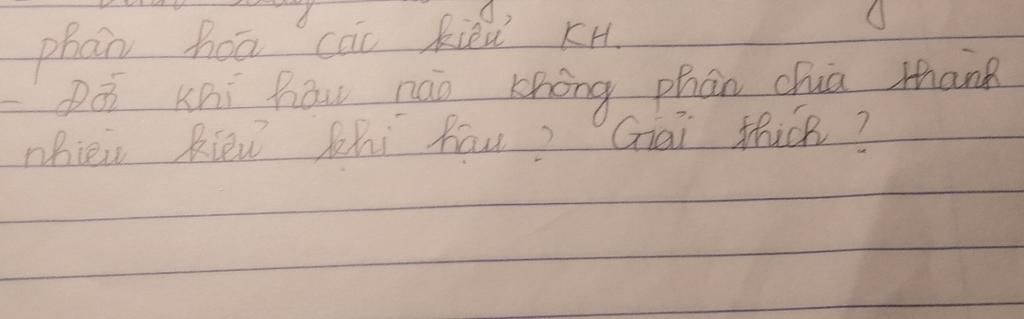 phân hoá các kiểu KH.
- Đới khí hậu nào không phân chia thành
nhiều kiểu khí hậu ? Giải thích ?